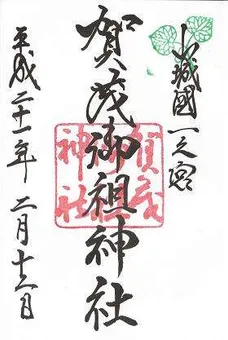 山城國一之宮
賀茂御祖神社
平成二十一年二月十三日
賀茂
神社